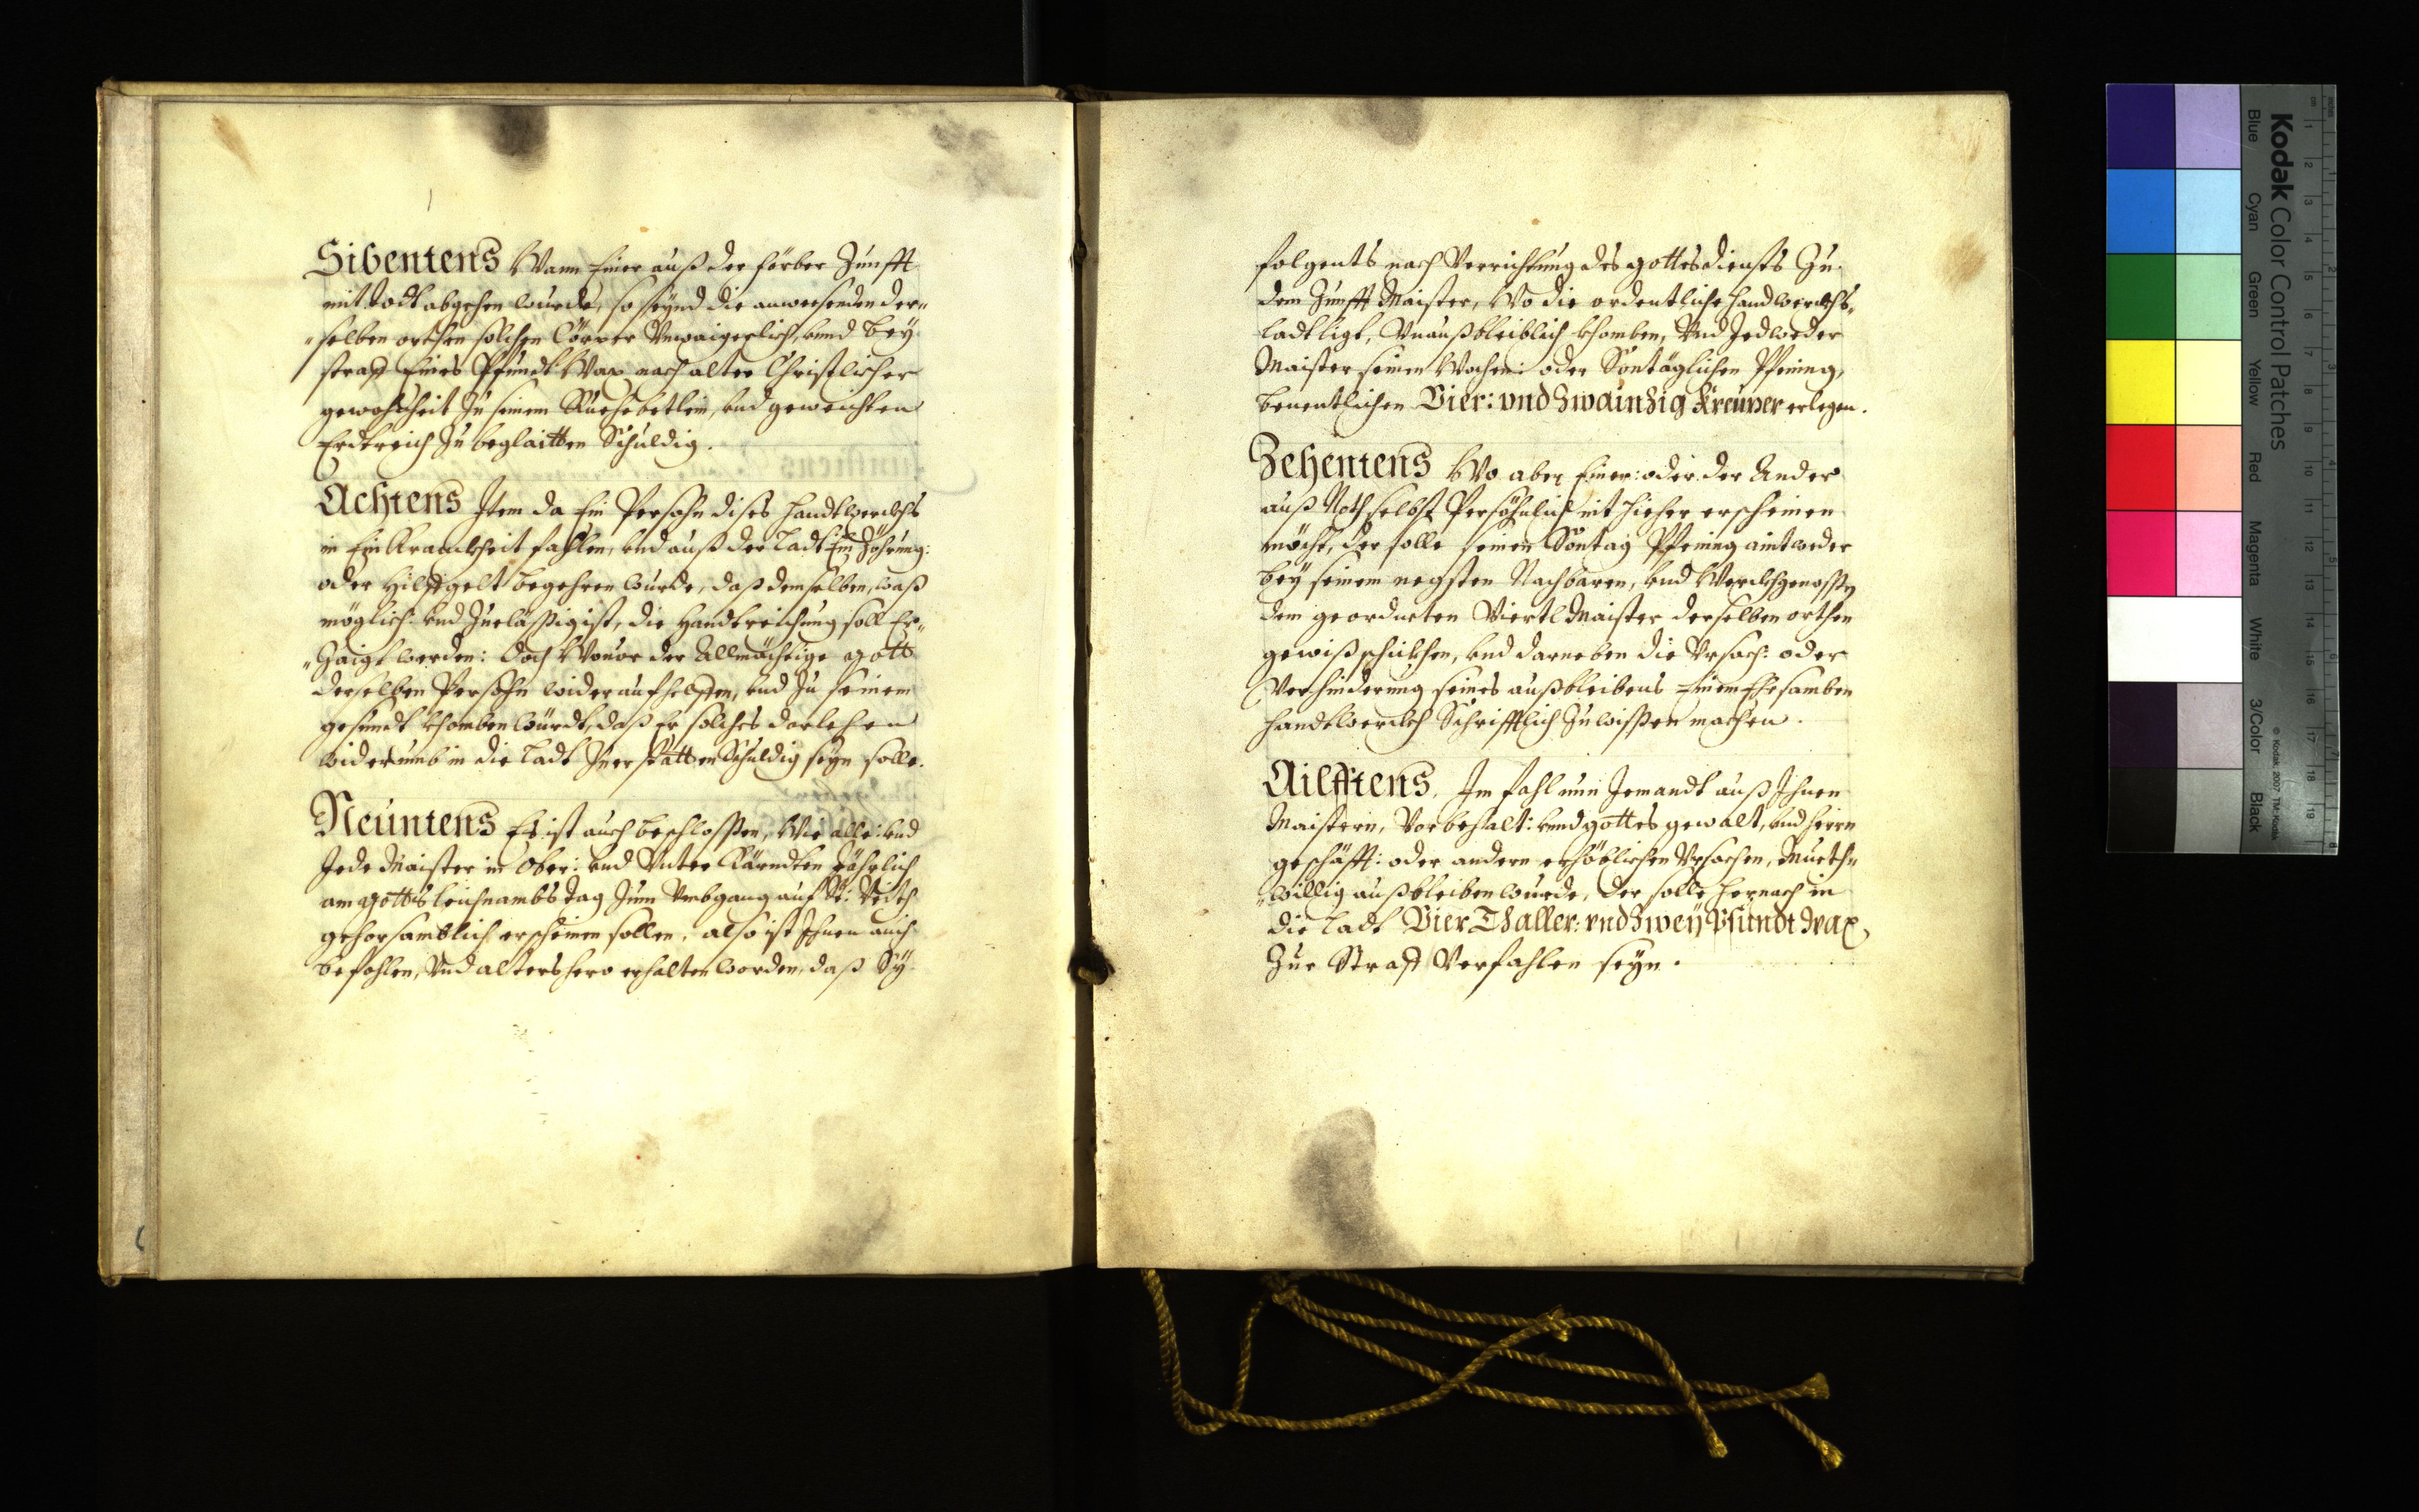 Sibentens Wann Einer auß der färber Zunfft
mit todt abgehen wurde, so seynd die anwesenden der„
„selben orthen solchen Cörper Vnwaigerlich, vnd bey
straff Eines Pfundt Wax nach alter Christlicher
gewohnheit Zu seinem Ruehebetlein, vnd geweichten
Erdtreich Zu beglaitten Schuldig.
Achtens Item da Ein Persohn dises handtwerchs
in Ein Kranckheit fahlen, vnd auß der Ladt Ein Zöhrung:
oder Hilffgelt begehren wurde, daß demselben, waß
möglich: vnd Zueläßig ist, die Handtreichung soll Er„
„Zaigt werden: Doch Wouor der Allmächtige gott
derselben Persohn wider aufhelffen, vnd Zu seinem
gesundt khomben würdt, daß Er solches darlehen
widerumb in die Ladt Zuerstatten Schuldig seyn solle.
Neüntens Es ist auch beschlossen, Wie alle: vnd
Jede Maister in Ober: vnd Vnter Kärndten Jährlich
am gottsleichnambs tag Zum Vmbgang auf St: Veith
gehorsamblich erscheinen sollen, also ist Ihnen auch
befohlen, Vnd altershero erhalten worden, daß Sÿ
folgents nach Verrichtung des gottesdiensts Zu
dem Zunfft Maister, Wo die ordentliche handtwerchs„
Ladt ligt, Vnaußbleiblich khomben, Vnd Jedweder
Maister seinen Wochen: oder Sontäglichen Pfening,
benentlichen Vier: vnd Zwainzig Kreüzer erlegen.
Zehentens Wo aber Einer: oder der Ander
auß Noth selbst Persöhnlich nit hieher erscheinen
möcht, der solle seinen Sontag Pfening aintweder
bey seinem negsten Nachbaren, vnd Werchgenossen
dem geordneten Viertl Maister derselben orthen
gewiß schickhen, vnd darneben die Vrsach: oder
Verhinderung seines außbleibens Einem Ehrsamben
handtwerch Schrifftlich Zu wissen machen.
Ailfftens. Im fahl nun Jemandt auß Ihnen
Maistern, Vorbehalt: vnd gottes gewalt, vnd herrn
geschäfft: oder andern erhöblichen Vrsachen, Mueth„
„willig außbleiben wurde, der solle hernach in
die Ladt Vier Thaller: vnd Zweÿ Pfundt Wax,
Zur Straff Verfahlen seyn.
Kodak Color Control Patches
Blue Cyan Green Yellow Red Magenta White 3/Color Black
© Kodak, 2007 TM: Kodak